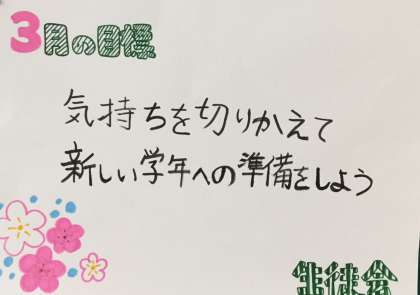 3月の目標
気持ちを切りかえて
新しい学年への準備をしよう
生徒会